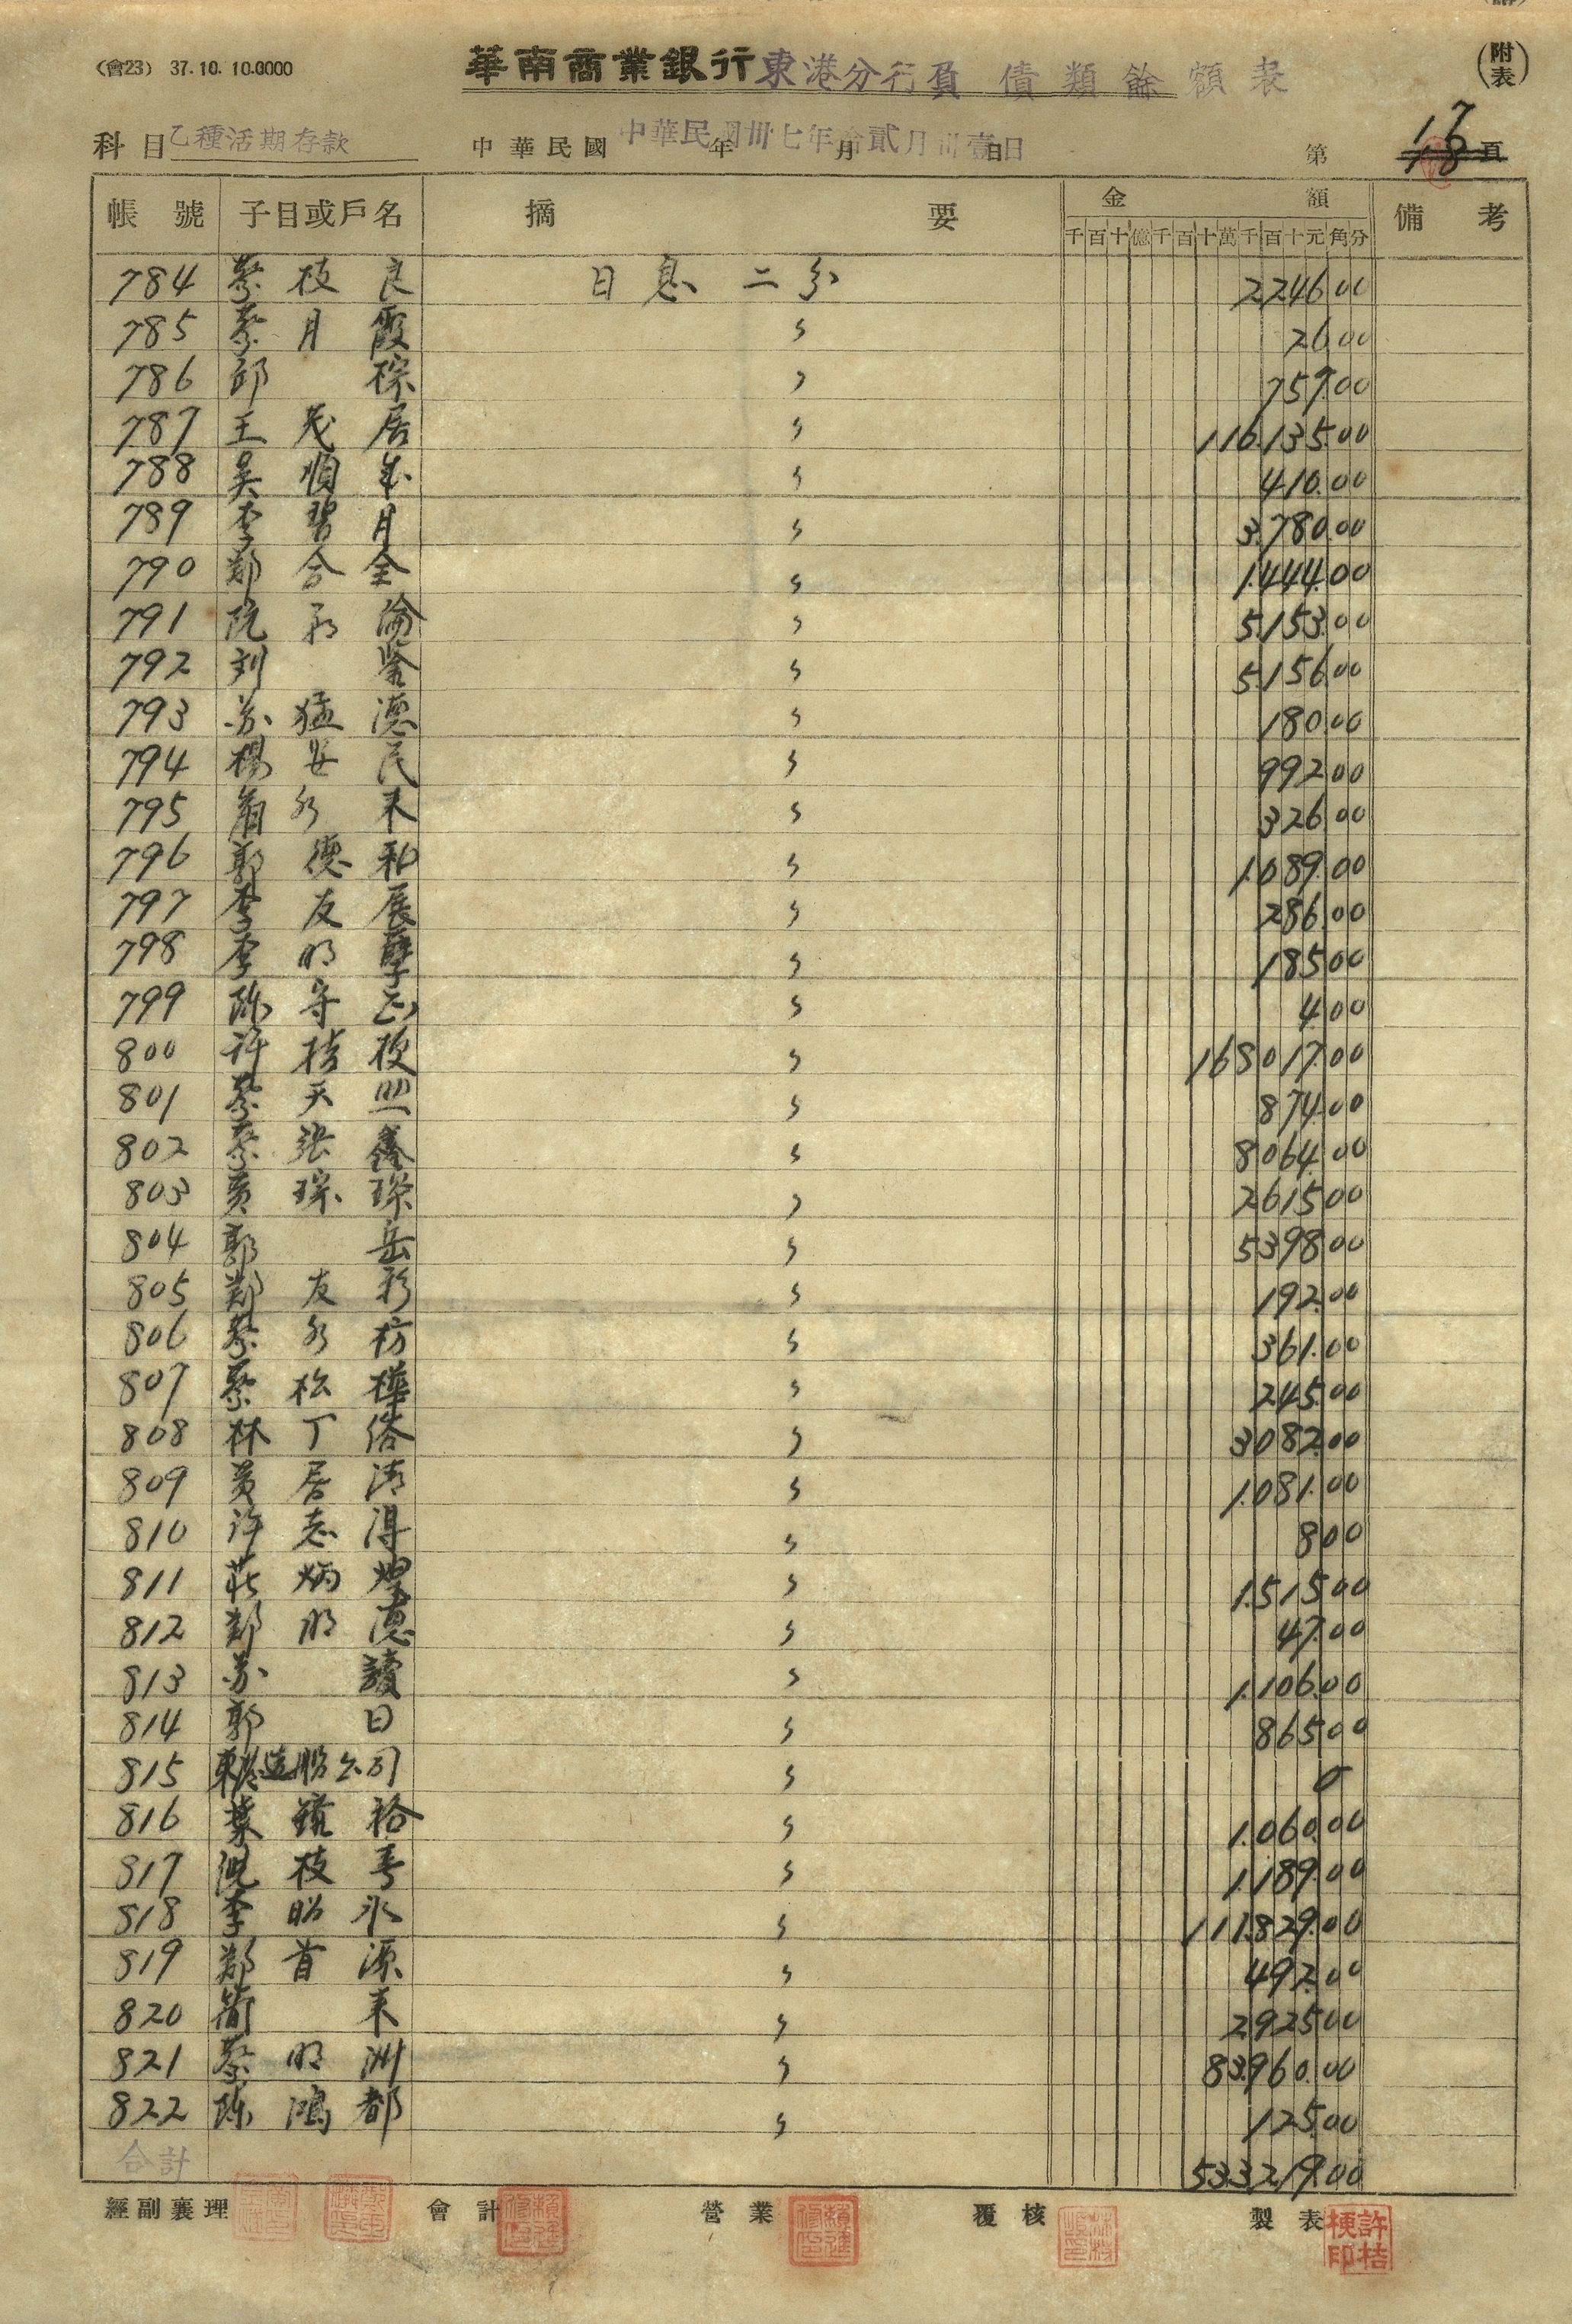 (附表)
(會23) 37.10.10.0000 華南商業銀行東港分行負債類餘額表
科目 乙種活期存款 中華民國 年 月 日 中華民國卅七年拾貳月卅壹日 第 17 頁
帳號 子目或戶名 摘要 金額 備考
千百十億千百十萬千百十元角分
784 蔡枝良 日息二分 2246.00
785 蔡月霞 〃 26.00
786 邱棕 〃 757.00
787 王茂居 〃 116.135.00
788 吳順年 〃 410.00
789 李碧月 〃 3.780.00
790 鄭合全 〃 1.444.00
791 阮 〃 5.153.00
792 刘鉴 〃 5.156.00
793 苏猛德 〃 180.00
794 楊安民 〃 992.00
795 水來 〃 326.00
796 郭德和 〃 1.089.00
797 李友展 〃 286.00
798 李明孽 〃 185.00
799 陈守 〃 4.00
800 许桔梗 〃 168.017.00
801 蔡天照 〃 874.00
802 蔡张鑫 〃 8064.00
803 黄琮琛 〃 2615.00
804 郭岳 〃 5398.00
805 鄭友彩 〃 192.00
806 蔡水枋 〃 361.00
807 蔡松樺 〃 245.00
808 林丁 〃 3082.00
809 黄居清 〃 1.081.00
810 许志得 〃 8.00
811 莊炳煌 〃 1.515.00
812 鄭明德 〃 47.00
813 苏讀 〃 1.106.00
814 郭日 〃 865.00
815 東港造船公司 〃 0
816 葉鏡裕 〃 1.060.00
817 洪枝 〃 1.189.00
818 李昭永 〃 111.829.00
819 鄭首源 〃 492.00
820 簡来 〃 2925.00
821 蔡明洲 〃 83.960.00
822 陈鴻都 〃 125.00
合計 533219.00
經副襄理 會計 營業 覆核 製表 許桔梗印